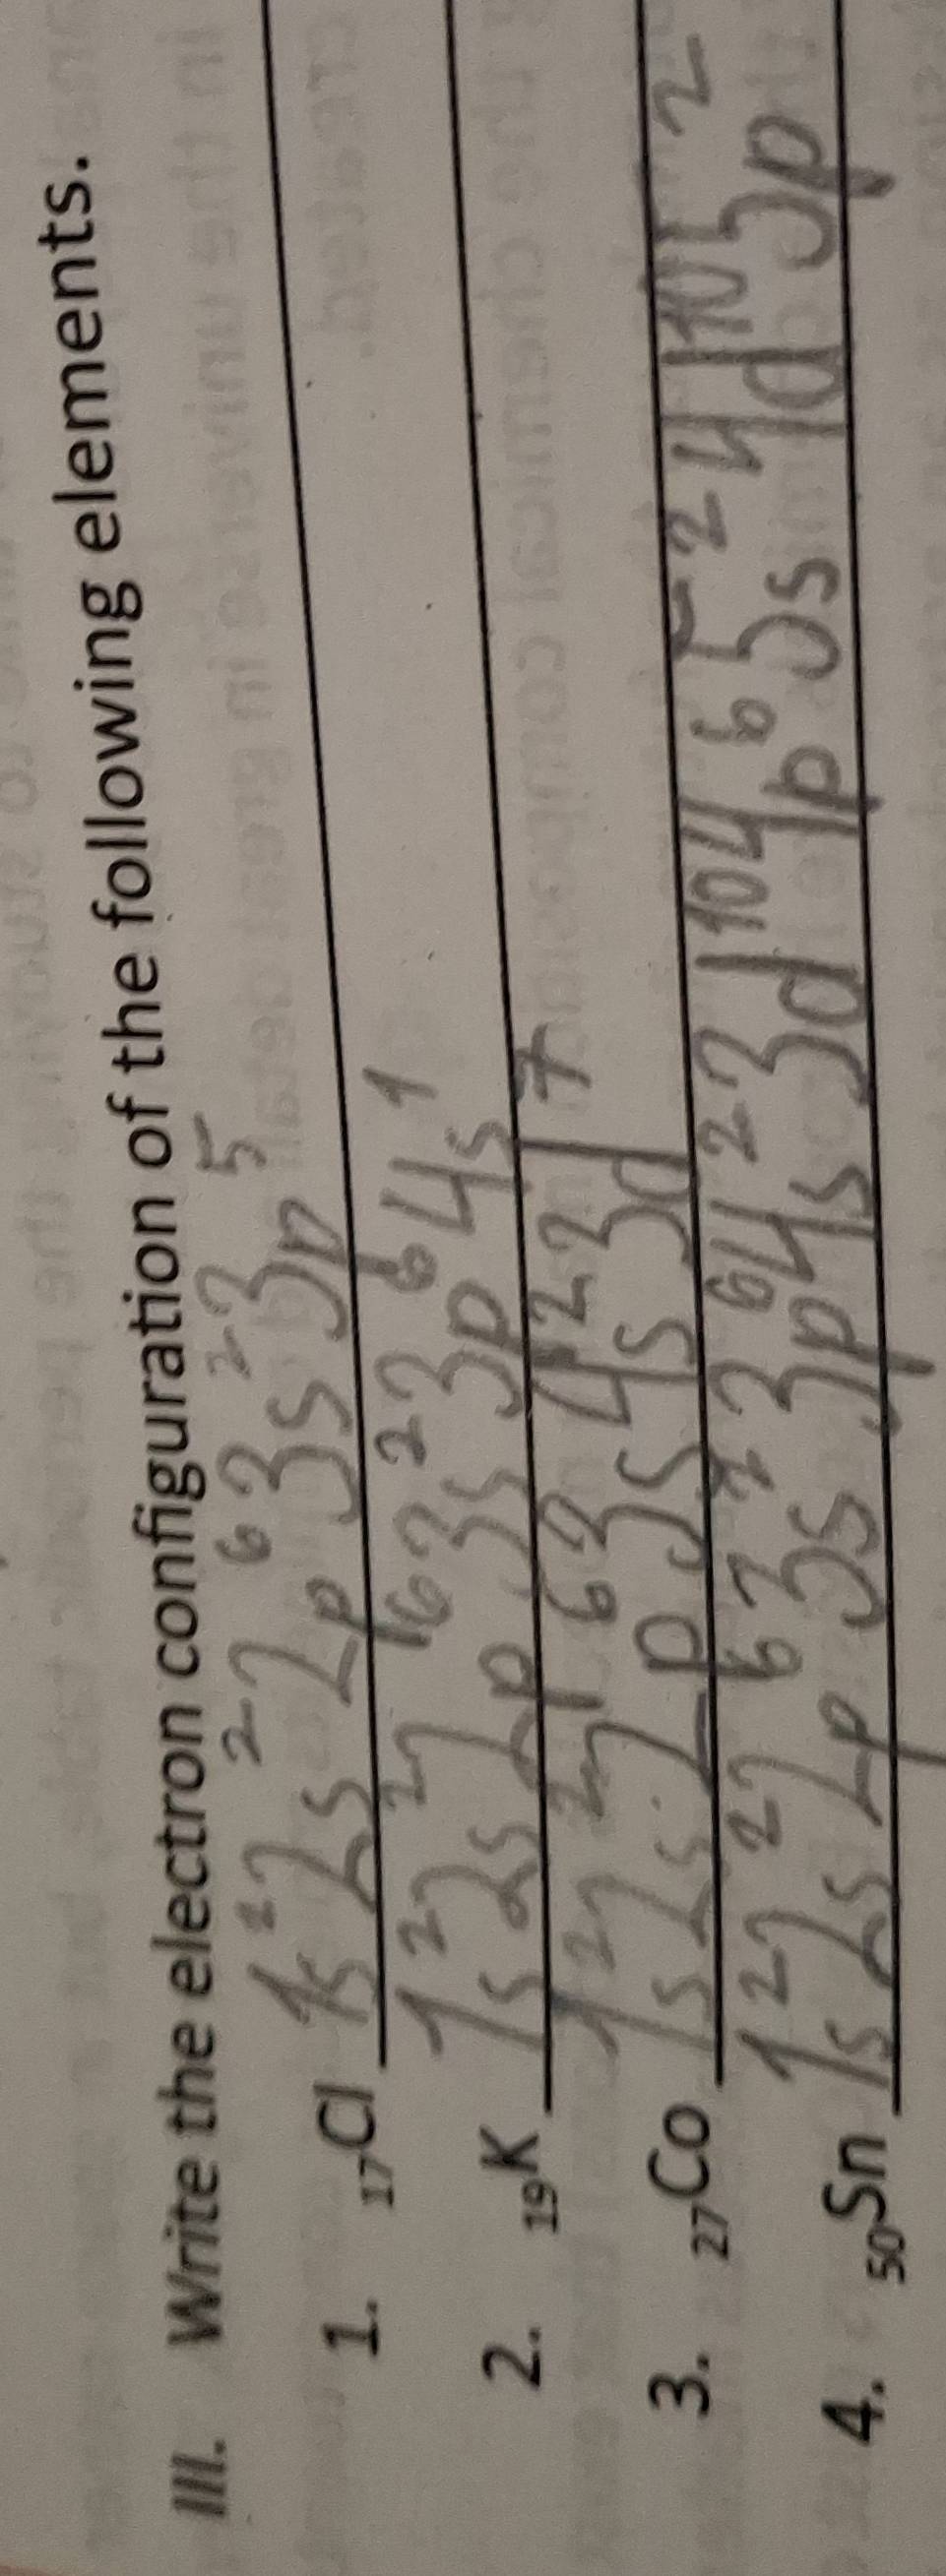 III. Write the electron configuration of the following elements.
1. ₁₇Cl 1s² 2s² 2p⁶ 3s² 3p⁵
2. ₁₉K 1s² 2s² 2p⁶ 3s² 3p⁶ 4s¹
3. ₂₇Co 1s² 2s² 2p⁶ 3s 4s² 3d⁷
4. ₅₀Sn 1s² 2s² 2p⁶ 3s² 3p⁶ 4s² 3d¹⁰ 4p⁶ 5s² 4d¹⁰ 5p²